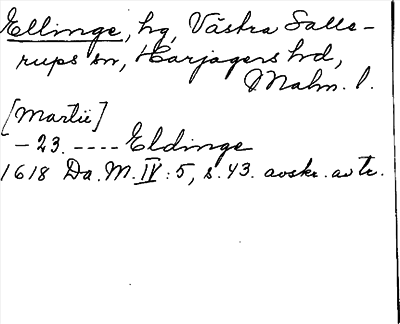 Ellinge, hg, Västra Salle-
rups sn, Harjagers hd,
Malm. l.
[Martii]
- 23. ---- Eldinge
1618 Da. M. IV: 5, s. 43. avskr. av tr.